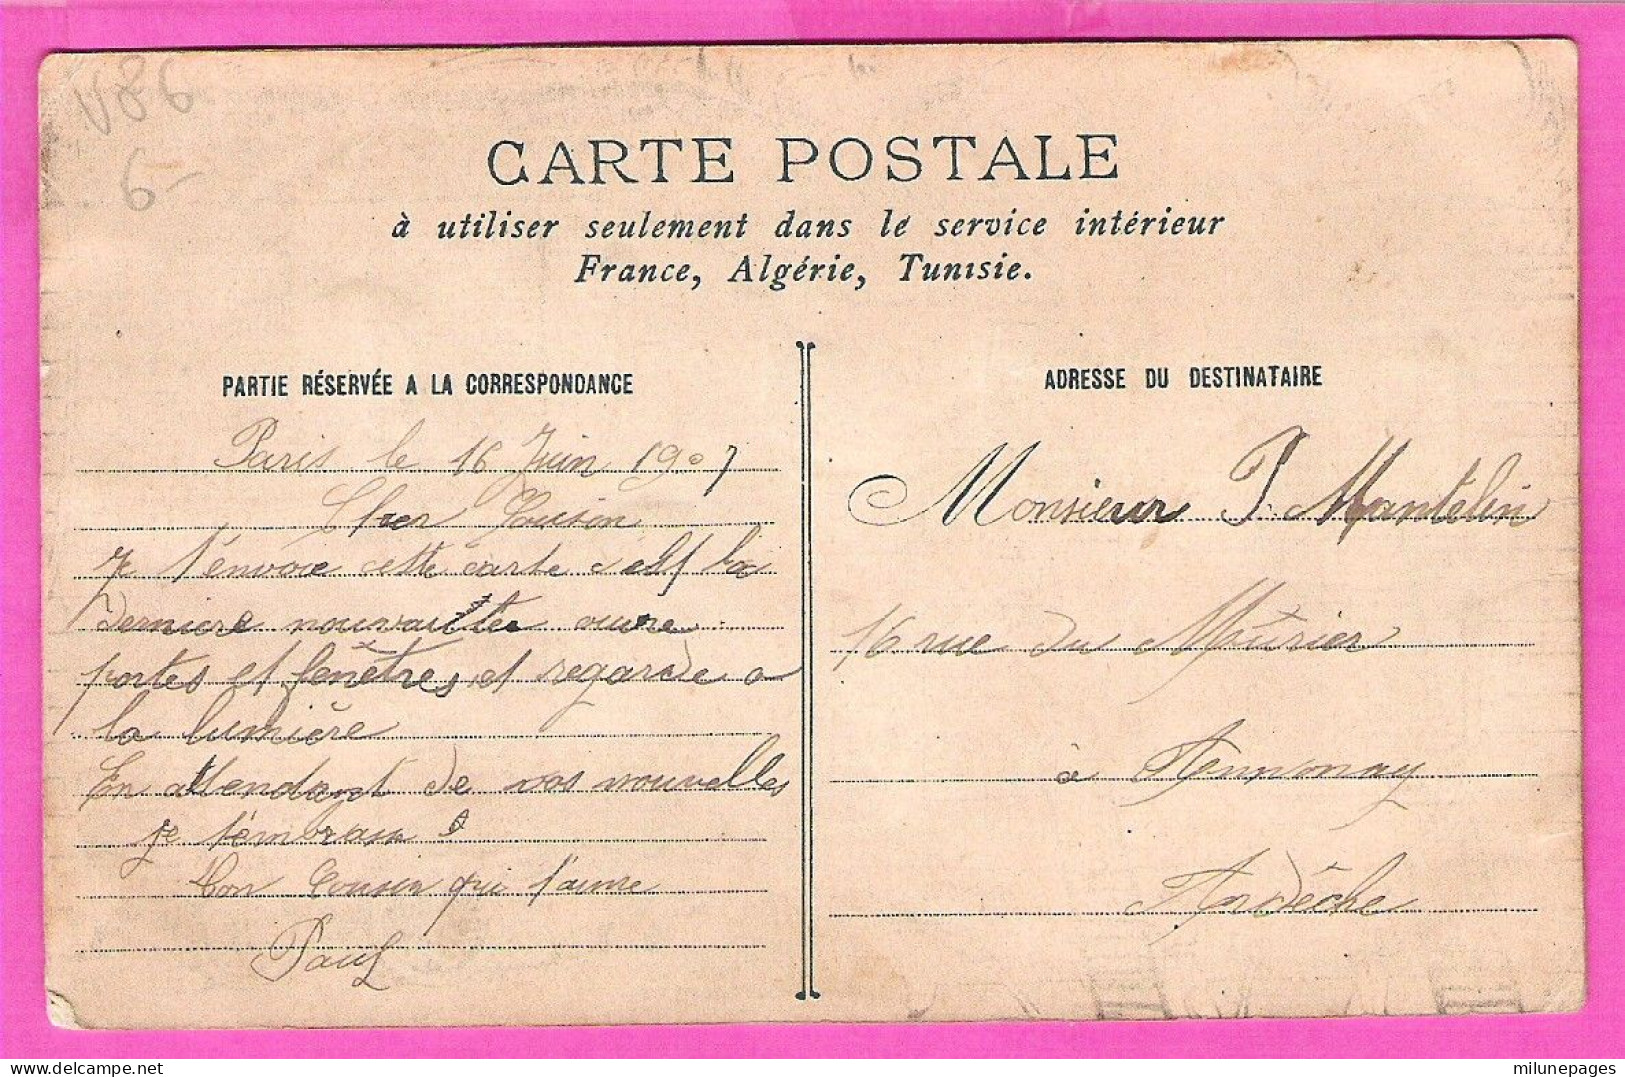 V86
6-
CARTE POSTALE
à utiliser seulement dans le service intérieur
France, Algérie, Tunisie.
PARTIE RÉSERVÉE A LA CORRESPONDANCE
ADRESSE DU DESTINATAIRE
Paris le 16 Juin 1907
Cher Cousin
Je t'envoie cette carte c'est la
derniere nouvautée ouvre
portes et fenêtres et regarde a
la lumière
En attendant de vos nouvelles
je t'embrasse
Ton Cousin qui t'aime
Paul
Monsieur P. Mantelin
16 rue du Mûrier
à Annonay
Ardèche
milunepages